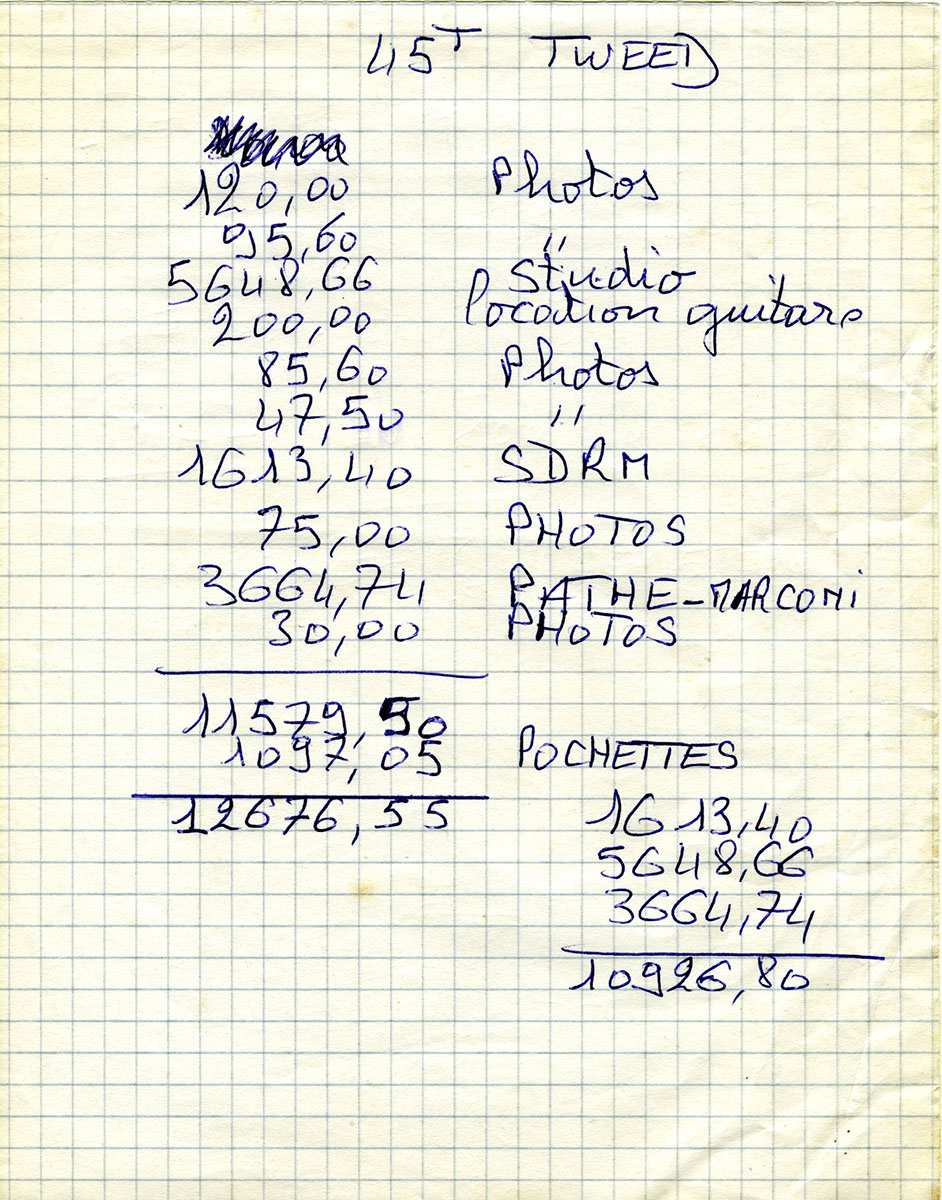 45T TWEED
120,00 Photos
95,60 "
5648,66 Studio
200,00 location guitare
85,60 Photos
47,50 "
1613,40 SDRM
75,00 PHOTOS
3664,74 PATHE-MARCONI
30,00 PHOTOS
11579,50
1097,05 POCHETTES
12676,55
1613,40
5648,66
3664,74
10926,80